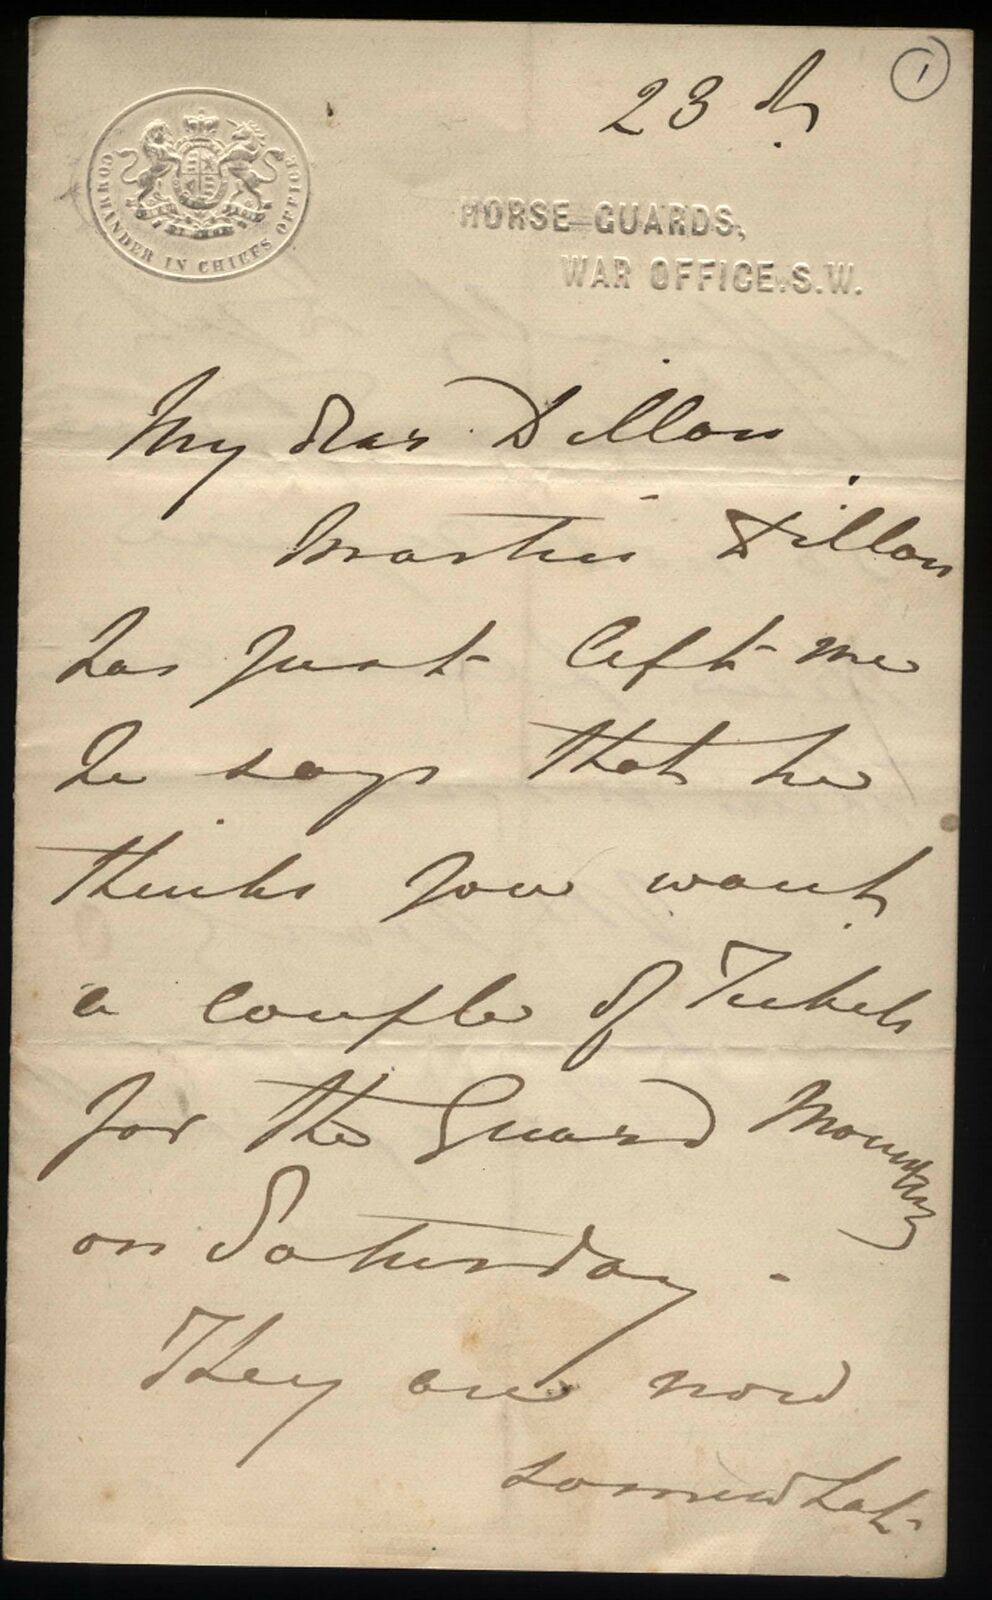 1
23rd
COMMANDER IN CHIEFS OFFICE
HORSE GUARDS,
WAR OFFICE. S.W.
My dear Dillon
Martin Dillon
has just left me
he says that he
thinks you want
a couple of Tickets
for the Guard Mounting
on Saturday -
They are now
somewhat